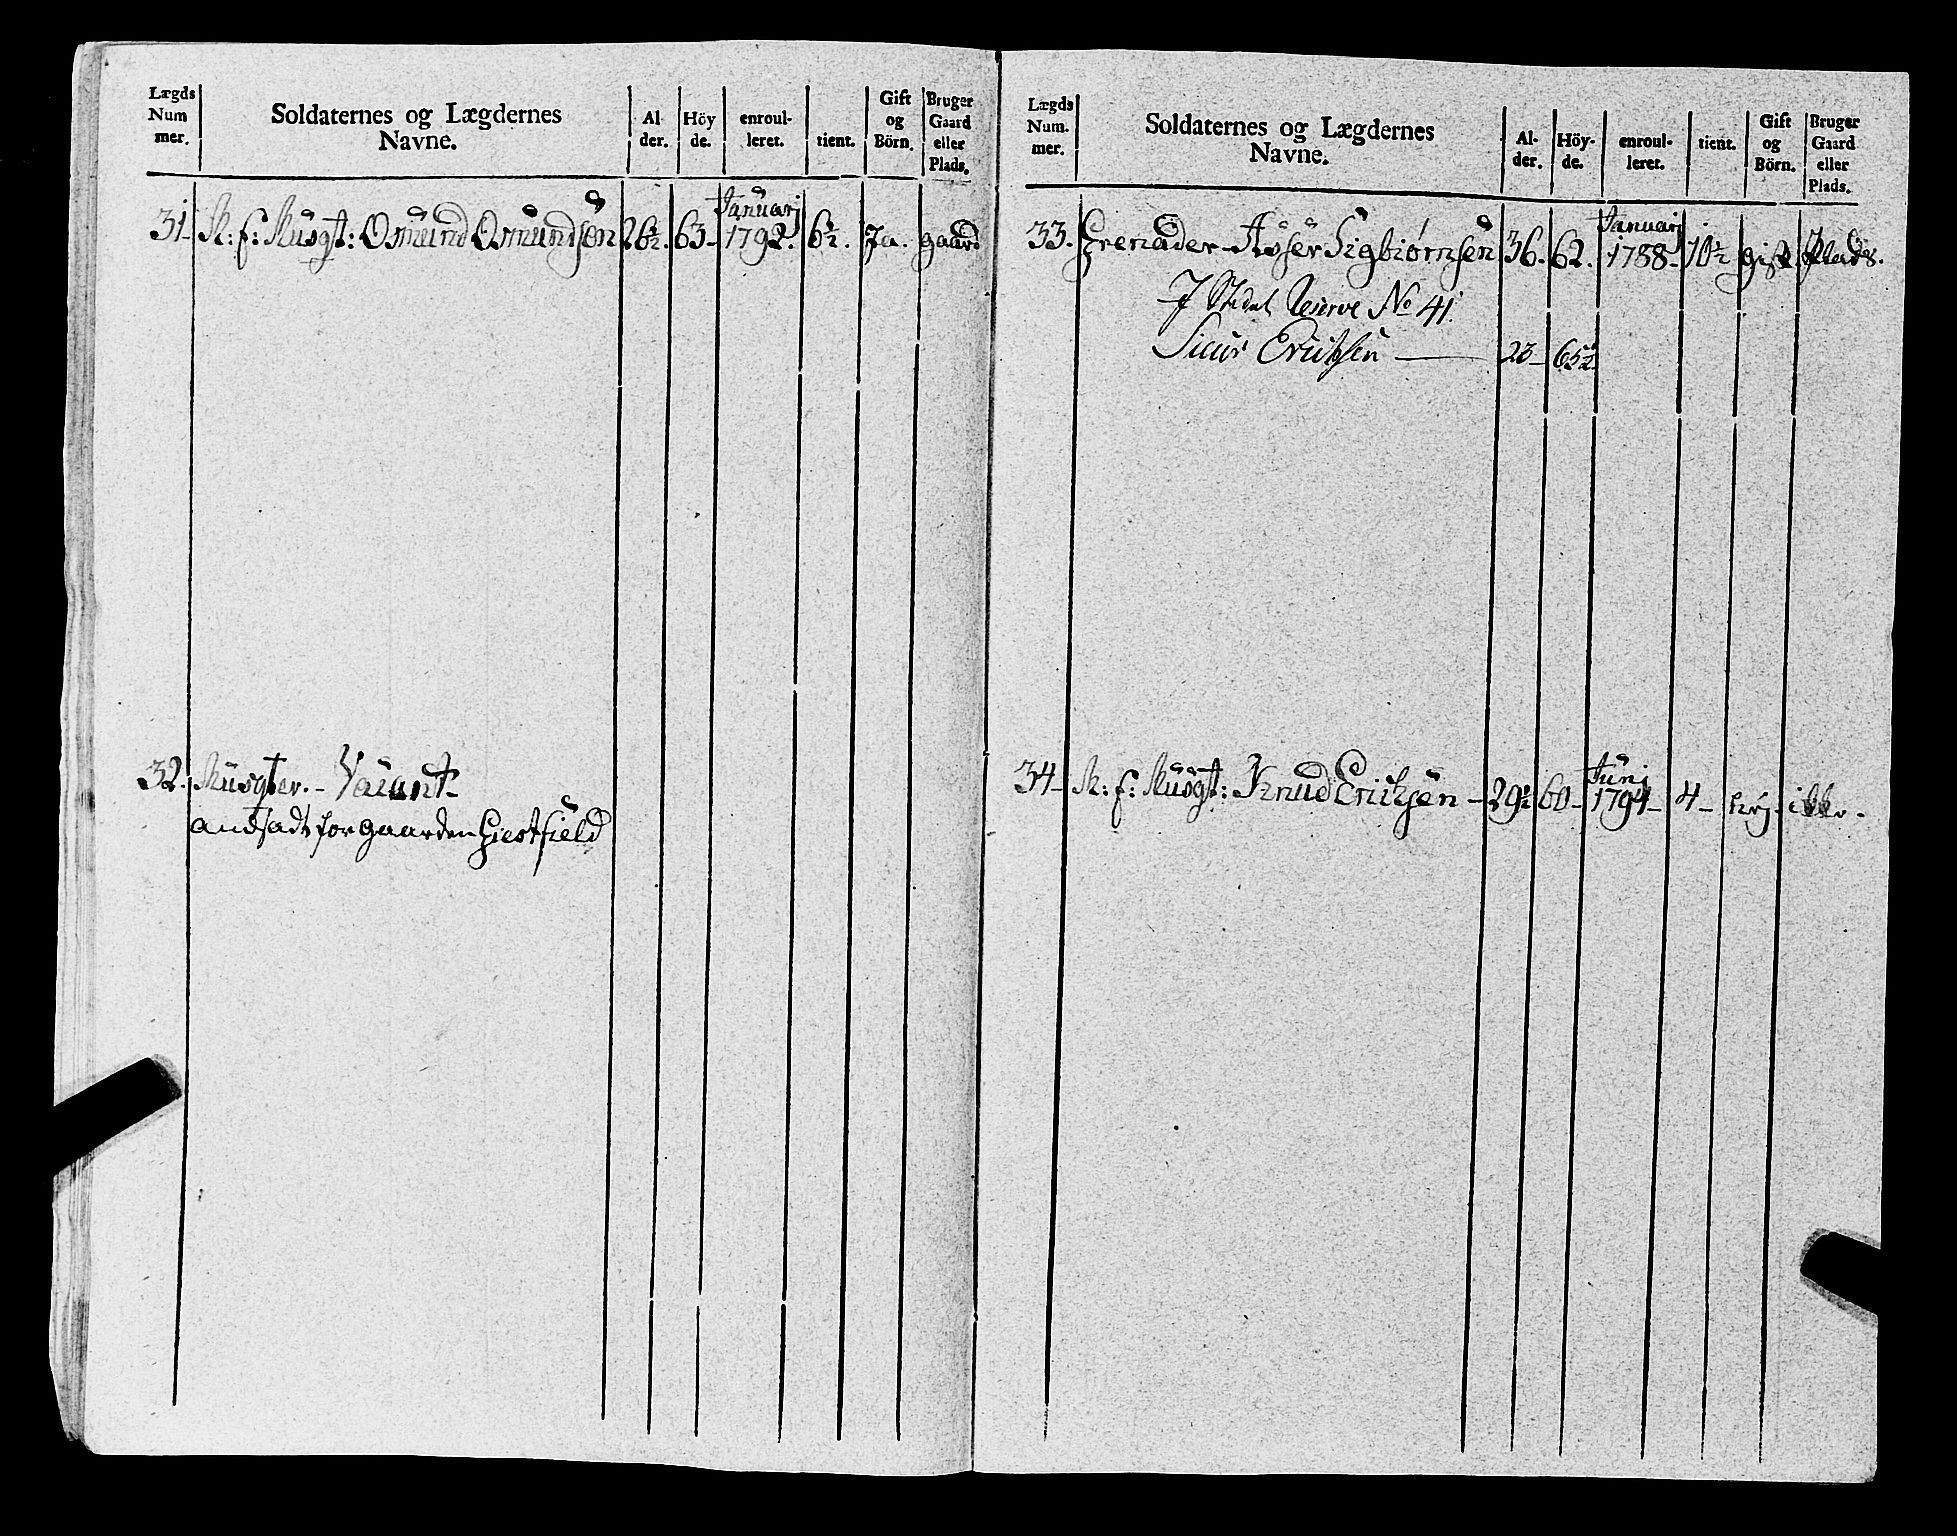 Lægds Num mer.
Soldaternes og Lægdernes Navne.
Al der.
Höy de.
enroul- leret.
tient.
Gift og Börn.
Bruger Gaard eller Plads.
Januarj
31 R: f: Musqt: Osmund Osmundsen 26½. 63- 1792. 6½. Ja. gaard
32. Musqter.- Vacant-
andsadt for gaarden Giestfield
Lægds Num. mer.
Soldaternes og Lægdernes Navne.
Al- der.
Höy- de.
enroul- leret.
tient.
Gift og Börn.
Bruger Gaard eller Plads.
Januarj
33. Grenader- Asser Sigbiørnsen 36. 62. 1788- 10½ gift. Plads.
J Stedet Reserve No 41.
Siuur Erichsen — 23- 65½
Junj
34- R: f: Musqt: Knud Erichsen - 29½ 60- 1794- 4- Nej- ikke.